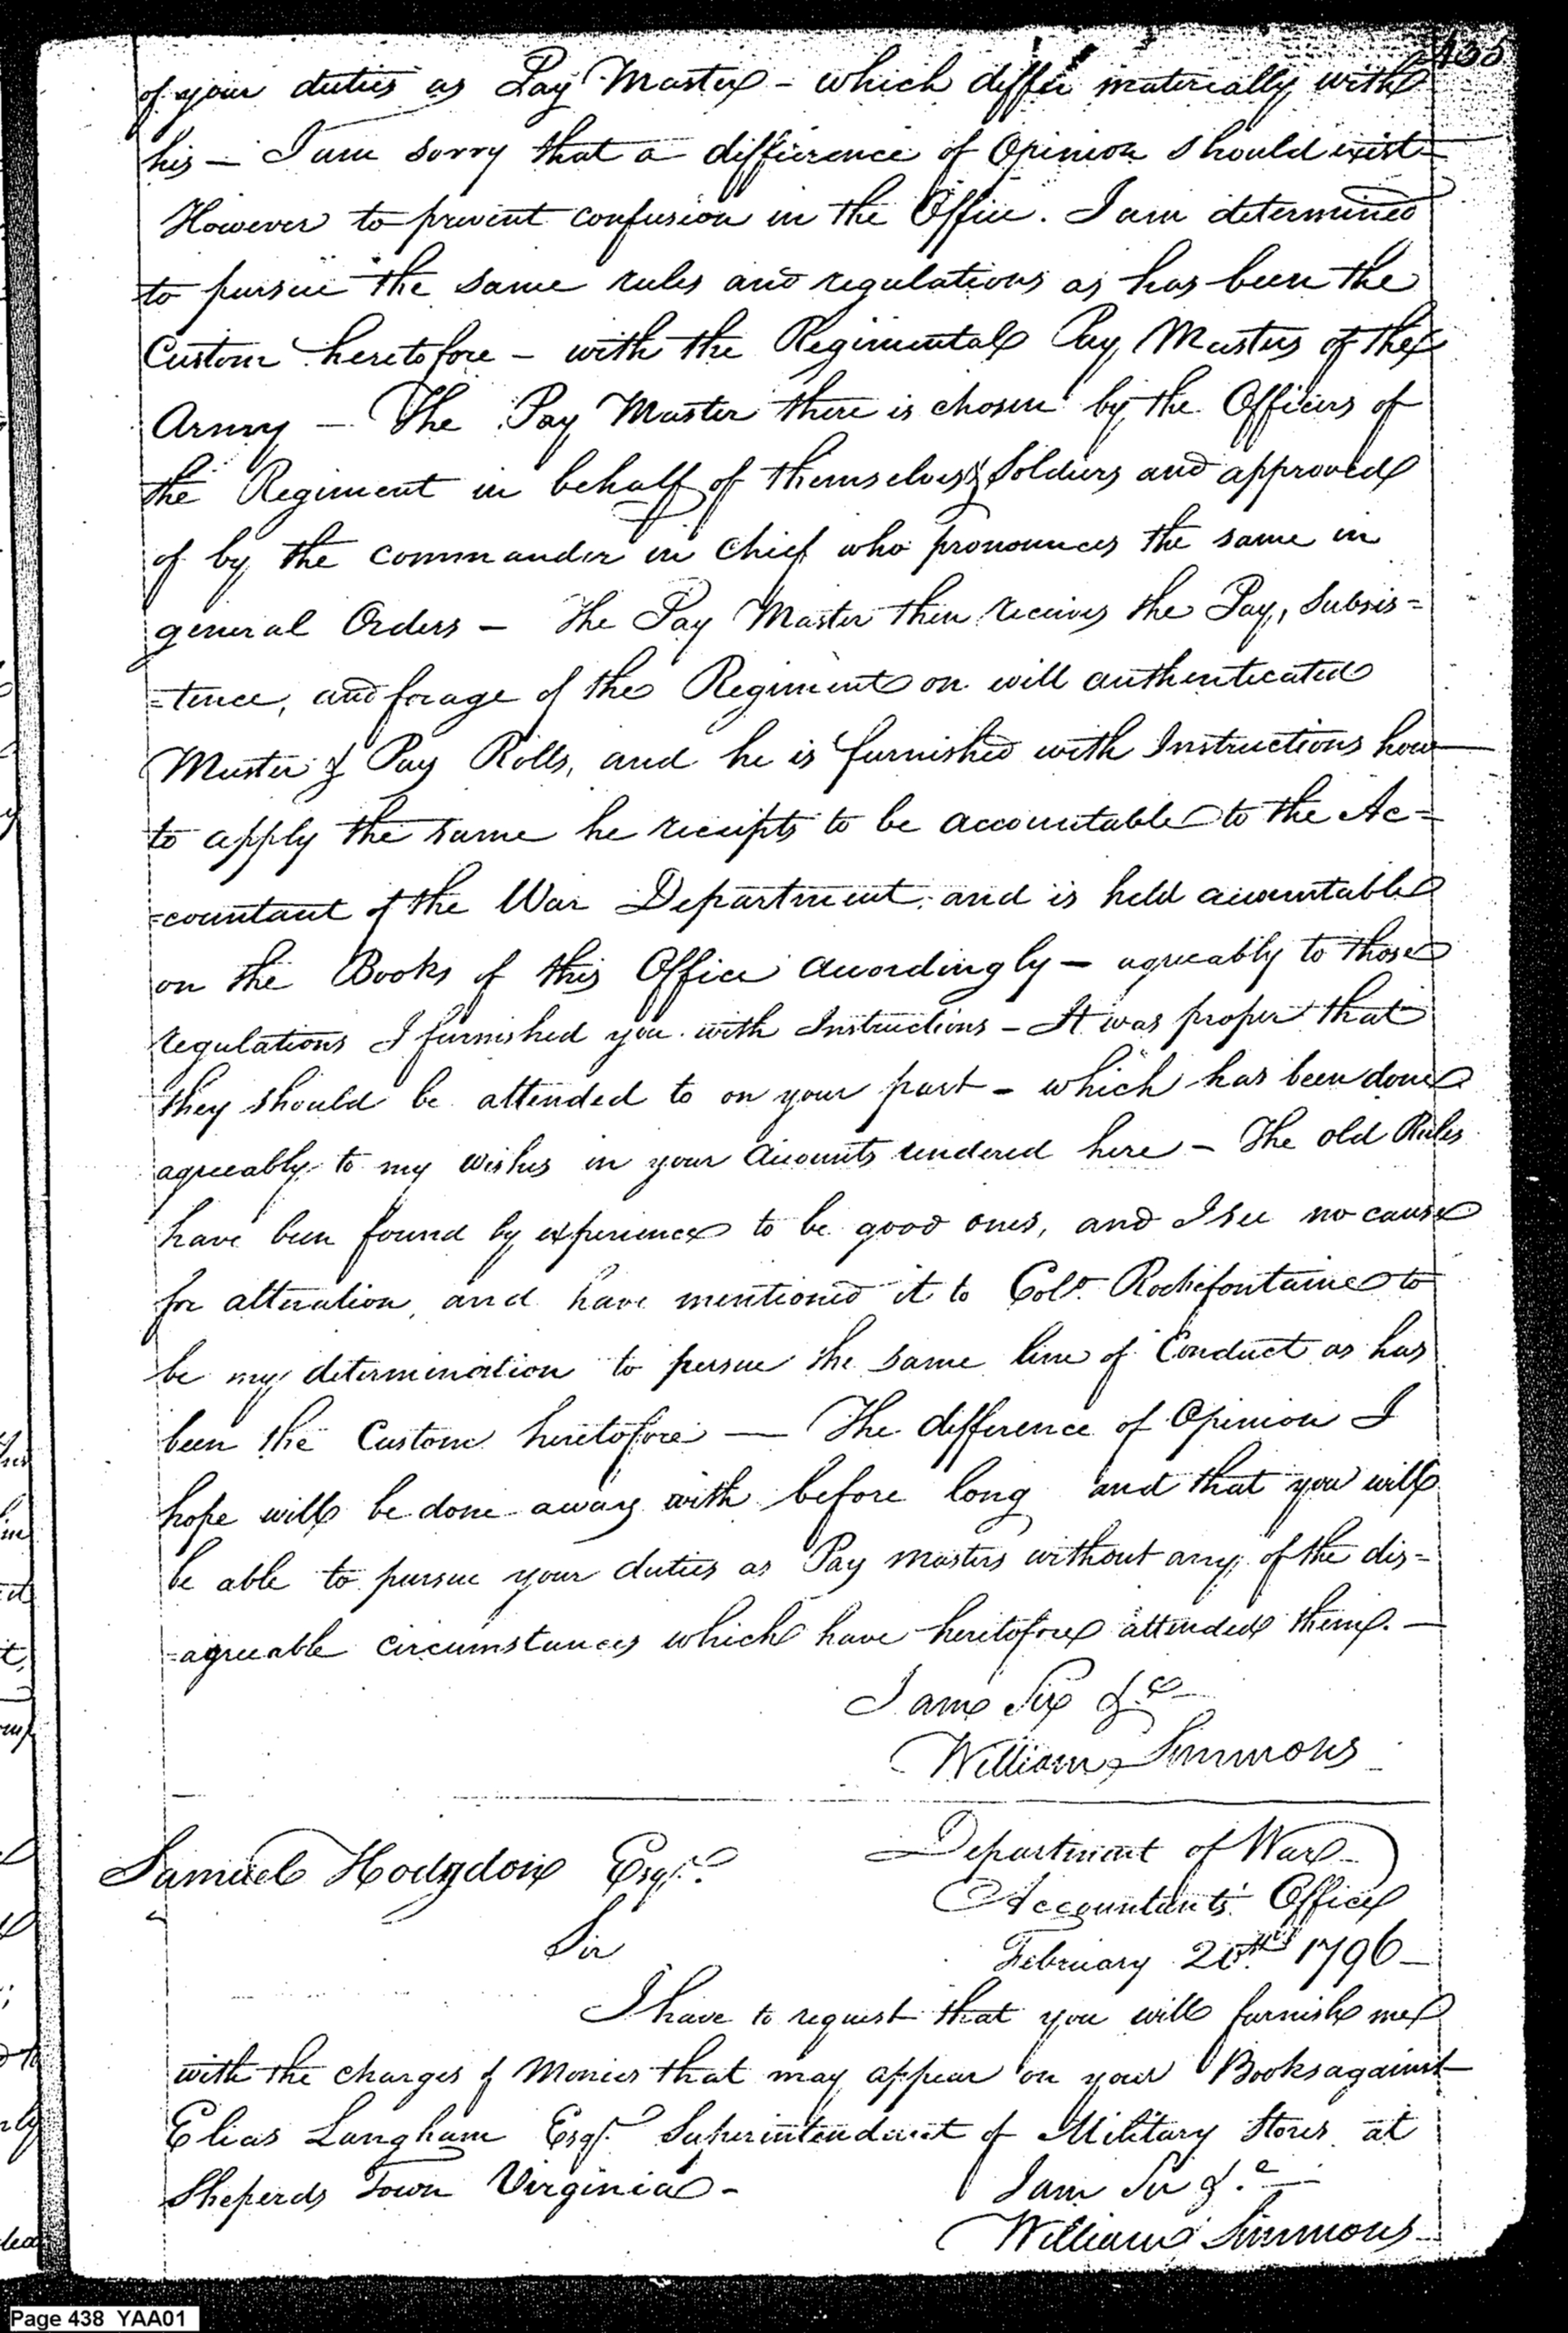 438
of your duties as Pay Master - which differ materially with
his — I am sorry that a difference of Opinion should exist —
However to prevent confusion in the Office. I am determined
to pursue the same rules and regulations as has been the
Custom heretofore — with the Regimental Pay Masters of the
Army — The Pay Master there is chosen by the Officers of
the Regiment in behalf of themselves & Soldiers and approved
of by the commander in chief who pronounces the same in
general Orders — The Pay Master then receives the Pay, Subsis=
=tence, and forage of the Regiment on will authenticated
Muster & Pay Rolls, and he is furnished with Instructions how
to apply the same he receipts to be accountable to the Ac=
=countant of the War Department, and is held accountable
on the Books of this Office accordingly — agreeably to those
regulations I furnished you with Instructions — It was proper that
they should be attended to on your part — which has been done
agreeably to my wishes in your Accounts rendered here — The old Rules
have been found by experience to be good ones, and I see no cause
for alteration, and have mentioned it to Colo. Rochefontaine to
be my determination to persue the same line of Conduct as has
been the Custom heretofore — The difference of Opinion I
hope will be done away with before long and that you will
be able to pursue your duties as Pay masters without any of the dis=
=agreeable circumstances which have heretofore attended them. —
I am Sir &c
William Simmons
Samuel Hodgdon Esqr.
Department of War
Accountants Office
Sir
February 20th 1796 —
I have to request that you will furnish me
with the charges of Monies that may appear on your Books against
Elias Langham Esqr. Superintendant of Military Stores at
Sheperds Town Virginia —
I am Sir &c —
William Simmons
Page 438 YAA01